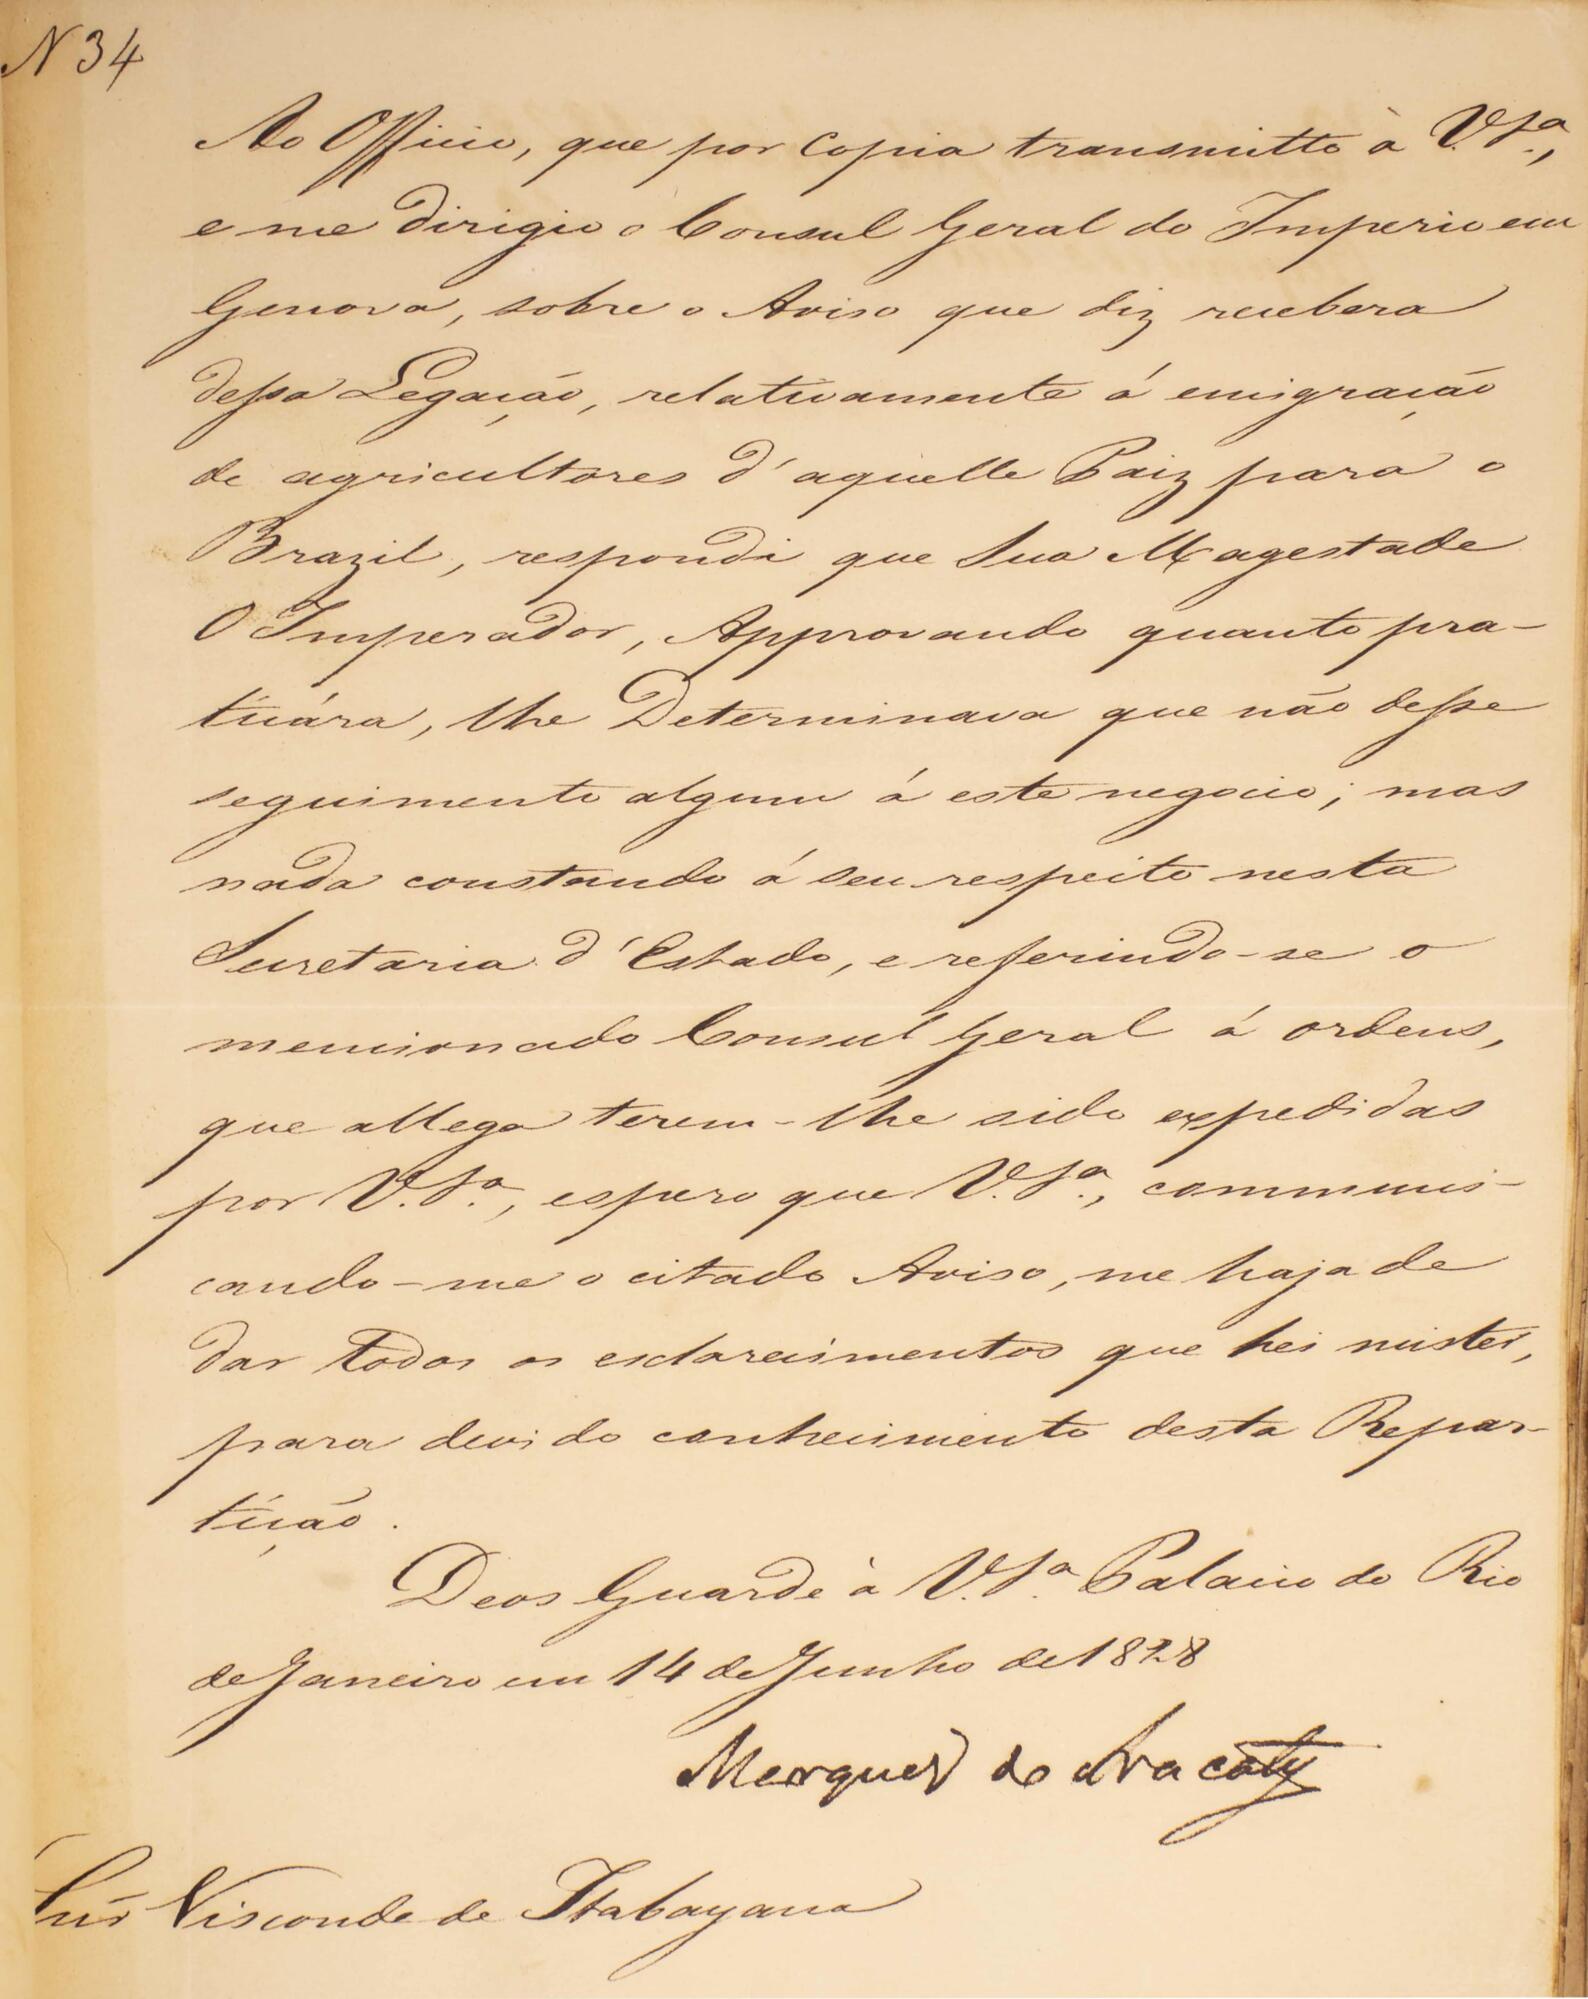 N 34
Ao Officio, que por Copia transmitto à V. S.ª,
e me dirigio o Consul Geral do Imperio em
Genova, sobre o Aviso que diz recebera
dessa Legação, relativamente á emigração
de agricultores d'aquelle Paiz para o
Brazil, respondi que Sua Magestade
O Imperador, Approvando quanto pra-
ticára, lhe Determinava que não desse
seguimento algum á este negocio; mas
nada constando á seu respeito nesta
Secretaria d'Estado, e referindo-se o
mencionado Consul Geral á ordens,
que allega terem-lhe sido expedidas
por V. S.ª, espero que V. S.ª, communi-
cando-me o citado Aviso, me haja de
dar todos os esclarecimentos que hei mister,
para devido conhecimento desta Repar-
tição.
Deos Guarde à V. S.ª Palacio do Rio
de Janeiro em 14 de Junho de 1828
Marquez do Aracaty
Snr Visconde de Itabayana